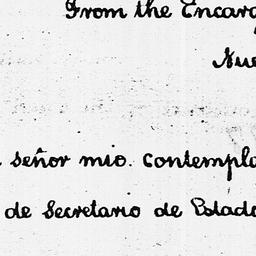 From the Encarg
Nue
señor mio. contempla
de Secretario de Estado